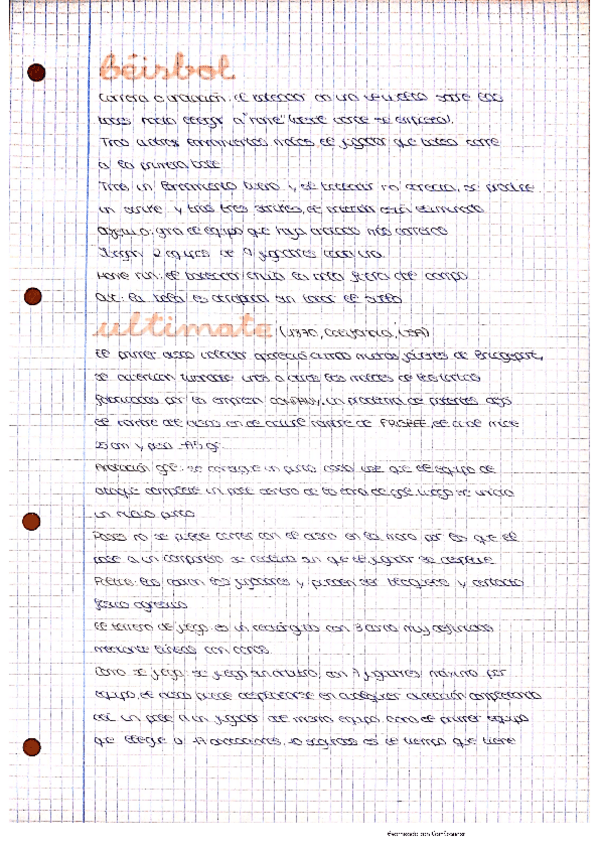 béisbol
Carrera o anotación: el bateador en una vuelta sobre las
bases hasta llegar a "home" (tiene donde se empieza).
Tras cuatro lanzamientos malos el jugador que batea corre
a la primera base
Tras un lanzamiento bueno y el bateador no acierta, se produce
un strike y tras tres strikes, el bateador está eliminado
gana el equipo que haya anotado más carreras
Juegan 2 equipos de 9 jugadores cada uno.
Home run: el bateador envía la bola fuera del campo
Out: la bola es atrapada sin tocar el suelo
ultimate (1970, California, USA)
El primer disco volador apareció cuando muchos jóvenes de Bridgeport,
se unos a otros los moldes de las tartas
fabricadas por la empresa un problema de patentes dejó
el nombre del disco en el actual nombre de FRISBEE, el cual mide
25 cm y pesa 175 gr.
Anotación gol: se consigue un punto cada vez que el equipo de
ataque complete un pase dentro de la zona de gol. Luego se inicia
un nuevo punto
Pasos no se puede correr con el disco en la mano por lo que el
pase a un compañero se realiza sin que el jugador se desplace
Faltas: las cantan los jugadores y pueden ser bloqueos y contacto
físico agresivo
El terreno de juego es un rectángulo con 3 zonas muy definidas
mediante líneas con conos.
Como se juega: se juega sin árbitro, con 7 jugadores máximo por
equipo, el disco puede desplazarse en cualquier dirección completando
así un pase a un jugador del mismo equipo. Gana el primer equipo
que llegue a 17 anotaciones, 10 segundos es el tiempo que tiene
Escaneado con CamScanner